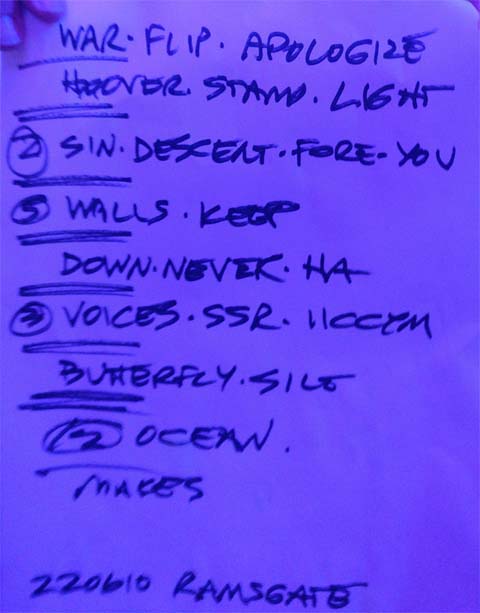 WAR. FLIP. APOLOGIZE
HOOVER. STAND. LIGHT
② SIN. DESCENT. FORE. YOU
⑤ WALLS. KEEP
DOWN. NEVER. HA
③ VOICES. SSR. 11CCYM
BUTTERFLY. SILE
OCEAN.
MAKES
220610 RAMSGATE